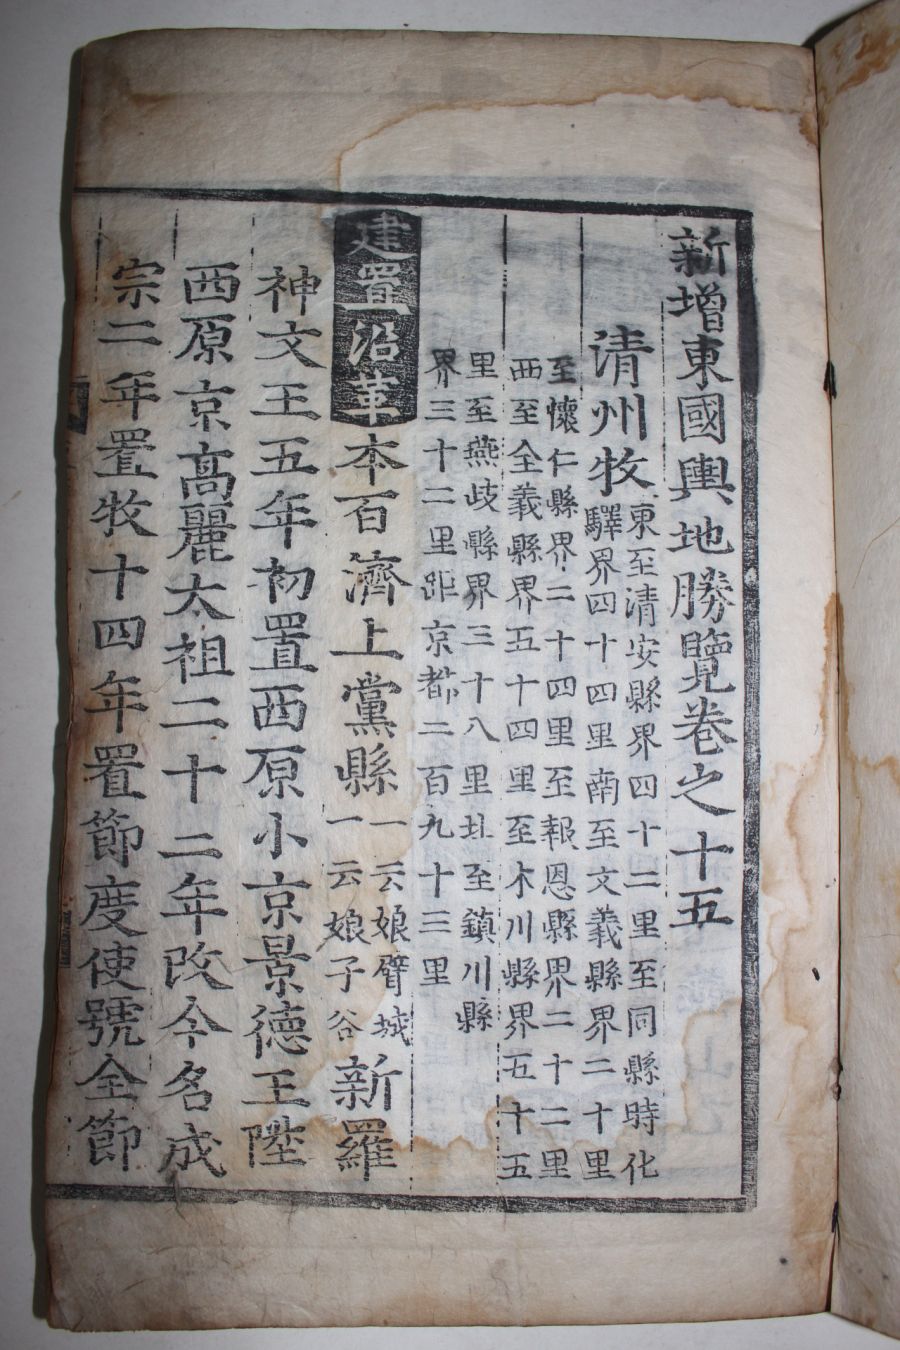 新增東國輿地勝覽卷之十五
清州牧
東至清安縣界四十二里至同縣時化
驛界四十四里南至文義縣界二十里
至懷仁縣界二十四里至報恩縣界二十二里
西至全義縣界五十四里至木川縣界五十五
里至燕歧縣界三十八里北至鎭川縣
界三十二里距京都二百九十三里
建置沿革本百濟上黨縣
一云娘臂城
一云娘子谷
新羅
神文王五年初置西原小京景德王陞
西原京高麗太祖二十二年改今名成
宗二年置牧十四年置節度使號全節